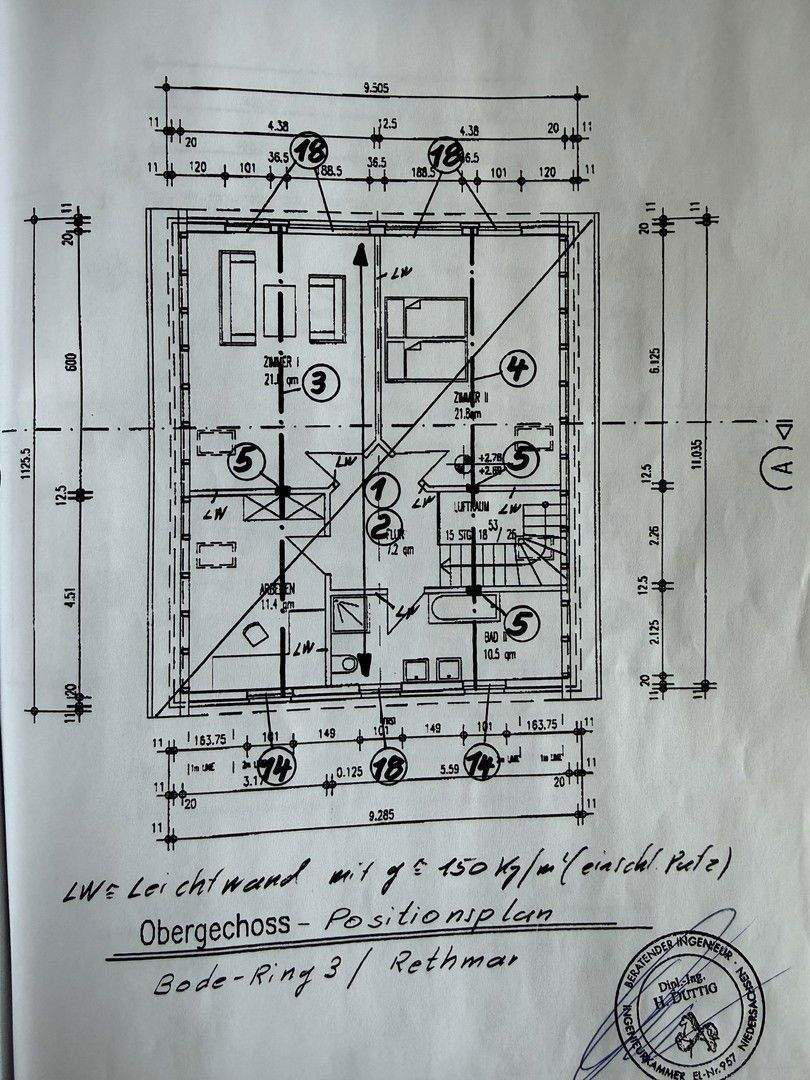 9.505
11 4.38 12.5 4.38 20 11
20
18 18
36.5 36.5
11 120 101 188.5 36.5 188.5 101 120 11
11 11
20 20
LW
600 6.125
ZIMMER I
3 4
ZIMMER II
21.8qm
A
1125.5 11.035
5 LW +2.76 5
1
12.5 12.5
LW LW LUFTRAUM
2 53
FLUR 15 STG 18 / 26
7.2 qm 2.26
ARBEITEN
11.4 qm 12.5
4.51 LW 5
BAD II 2.125
LW 10.5 qm
20 20
11 11
FIRST
11 163.75 101 149 101 149 101 163.75 11
14 18 14
11 3.17 0.125 5.59 11
20 20
9.285
11 11
LW ≙ Leichtwand mit g ≙ 150 Kg/m² (einschl. Putz)
Obergechoss - Positionsplan
Bode-Ring 3 / Rethmar
BERATENDER INGENIEUR · NIEDERSACHSEN
Dipl.-Ing.
H. DUTTIG
INGENIEURKAMMER
El-Nr. 957